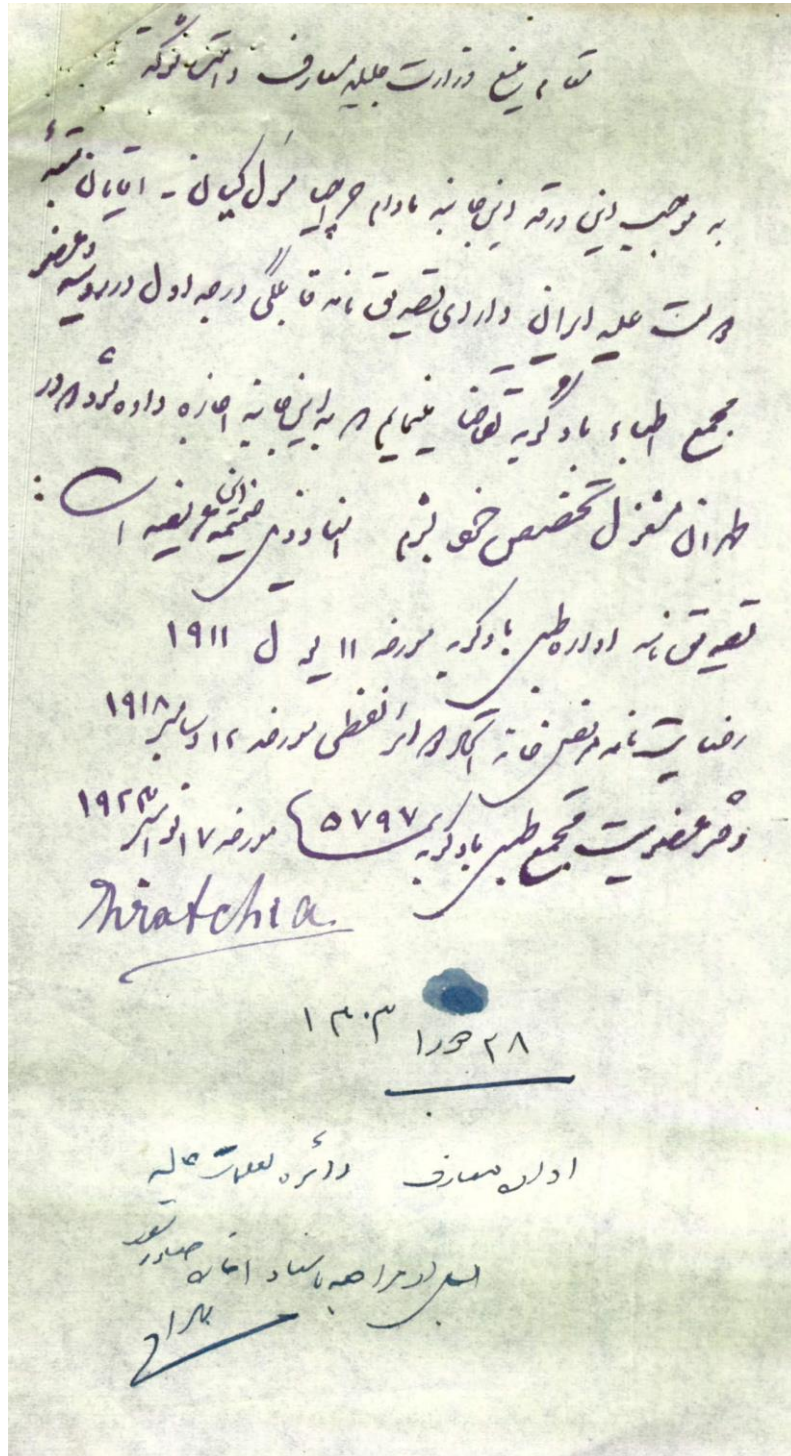 مقام منیع وزارت جلیله معارف دامت شوکته
به موجب این ورقه اینجانبه مادام هراچیا ملکیان - اقایان تبعه
دولت علیه ایران دارای تصدیق نامه قابلگی درجه اول در روسیه و عضو
مجمع اطباء بادکوبه تقاضا مینمایم که به اینجانبه اجازه داده شود که در
طهران مشغول تخصص خود بشوم اسناد ذیل ضمیمه عریضه است:
تصدیق نامه اداره طبی بادکوبه مورخه ۱۱ یول ۱۹۱۱
رضایت نامه مریض خانه نفطی مورخه ۱۲ دسامبر ۱۹۱۸
دفتر عضویت مجمع طبی بادکوبه ۵۷۹۷ مورخه ۱۷ نوامبر ۱۹۲۳
Hratchia.
۲۸ جوزا ۱۳۰۳
اداره معارف دائره تعلیمات عالیه
پس از مراجعه باسناد اجازه صادر شود